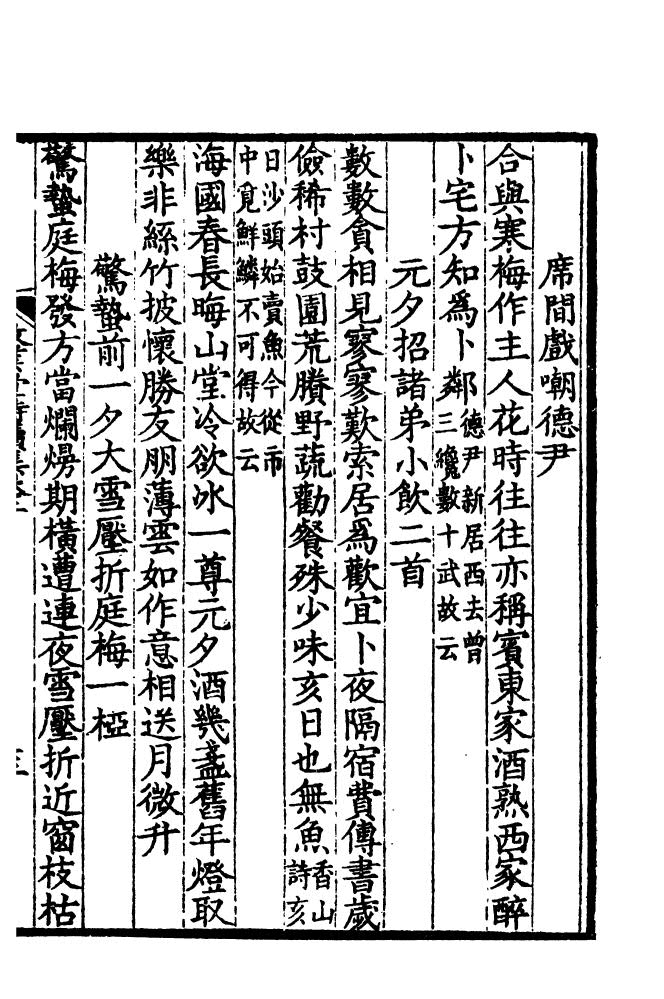 席間戲嘲德尹
合與寒梅作主人花時往往亦稱賓東家酒熟西家醉
卜宅方知為卜鄰德尹新居西去曾三纔數十武故云
元夕招諸弟小飲二首
數數貪相見寥寥歎索居為歡宜卜夜隔宿費傳書歲
儉稀村鼓園荒賸野蔬勸餐殊少味亥日也無魚香山詩亥
日沙頭始賣魚今從市中覓鮮鱗不可得故云
海國春長晦山堂冷欲冰一尊元夕酒幾盞舊年燈取
樂非絲竹披懷勝友朋薄雲如作意相送月微升
驚蟄前一夕大雪壓折庭梅一椏
驚蟄庭梅發方當爛熳期橫遭連夜雪壓折近窗枝枯